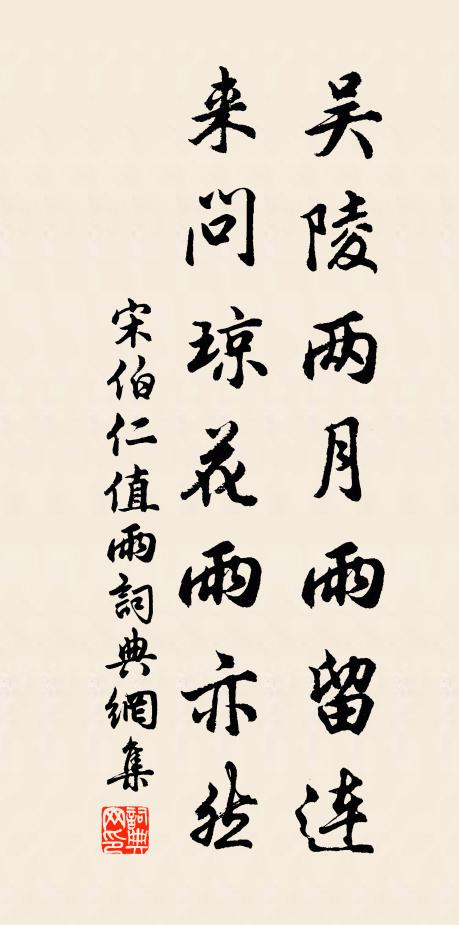 吴陵两月雨留连
来问琼花雨亦然
宋伯仁值雨詞典網集
詞典网印